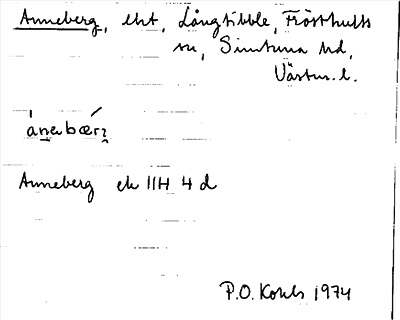 Anneberg, lht, Långtibble, Frösthults
sn, Simtuna hd,
Västm. l.
ánabær
Anneberg ek 11H 4 d
P.O. Kohls 1974